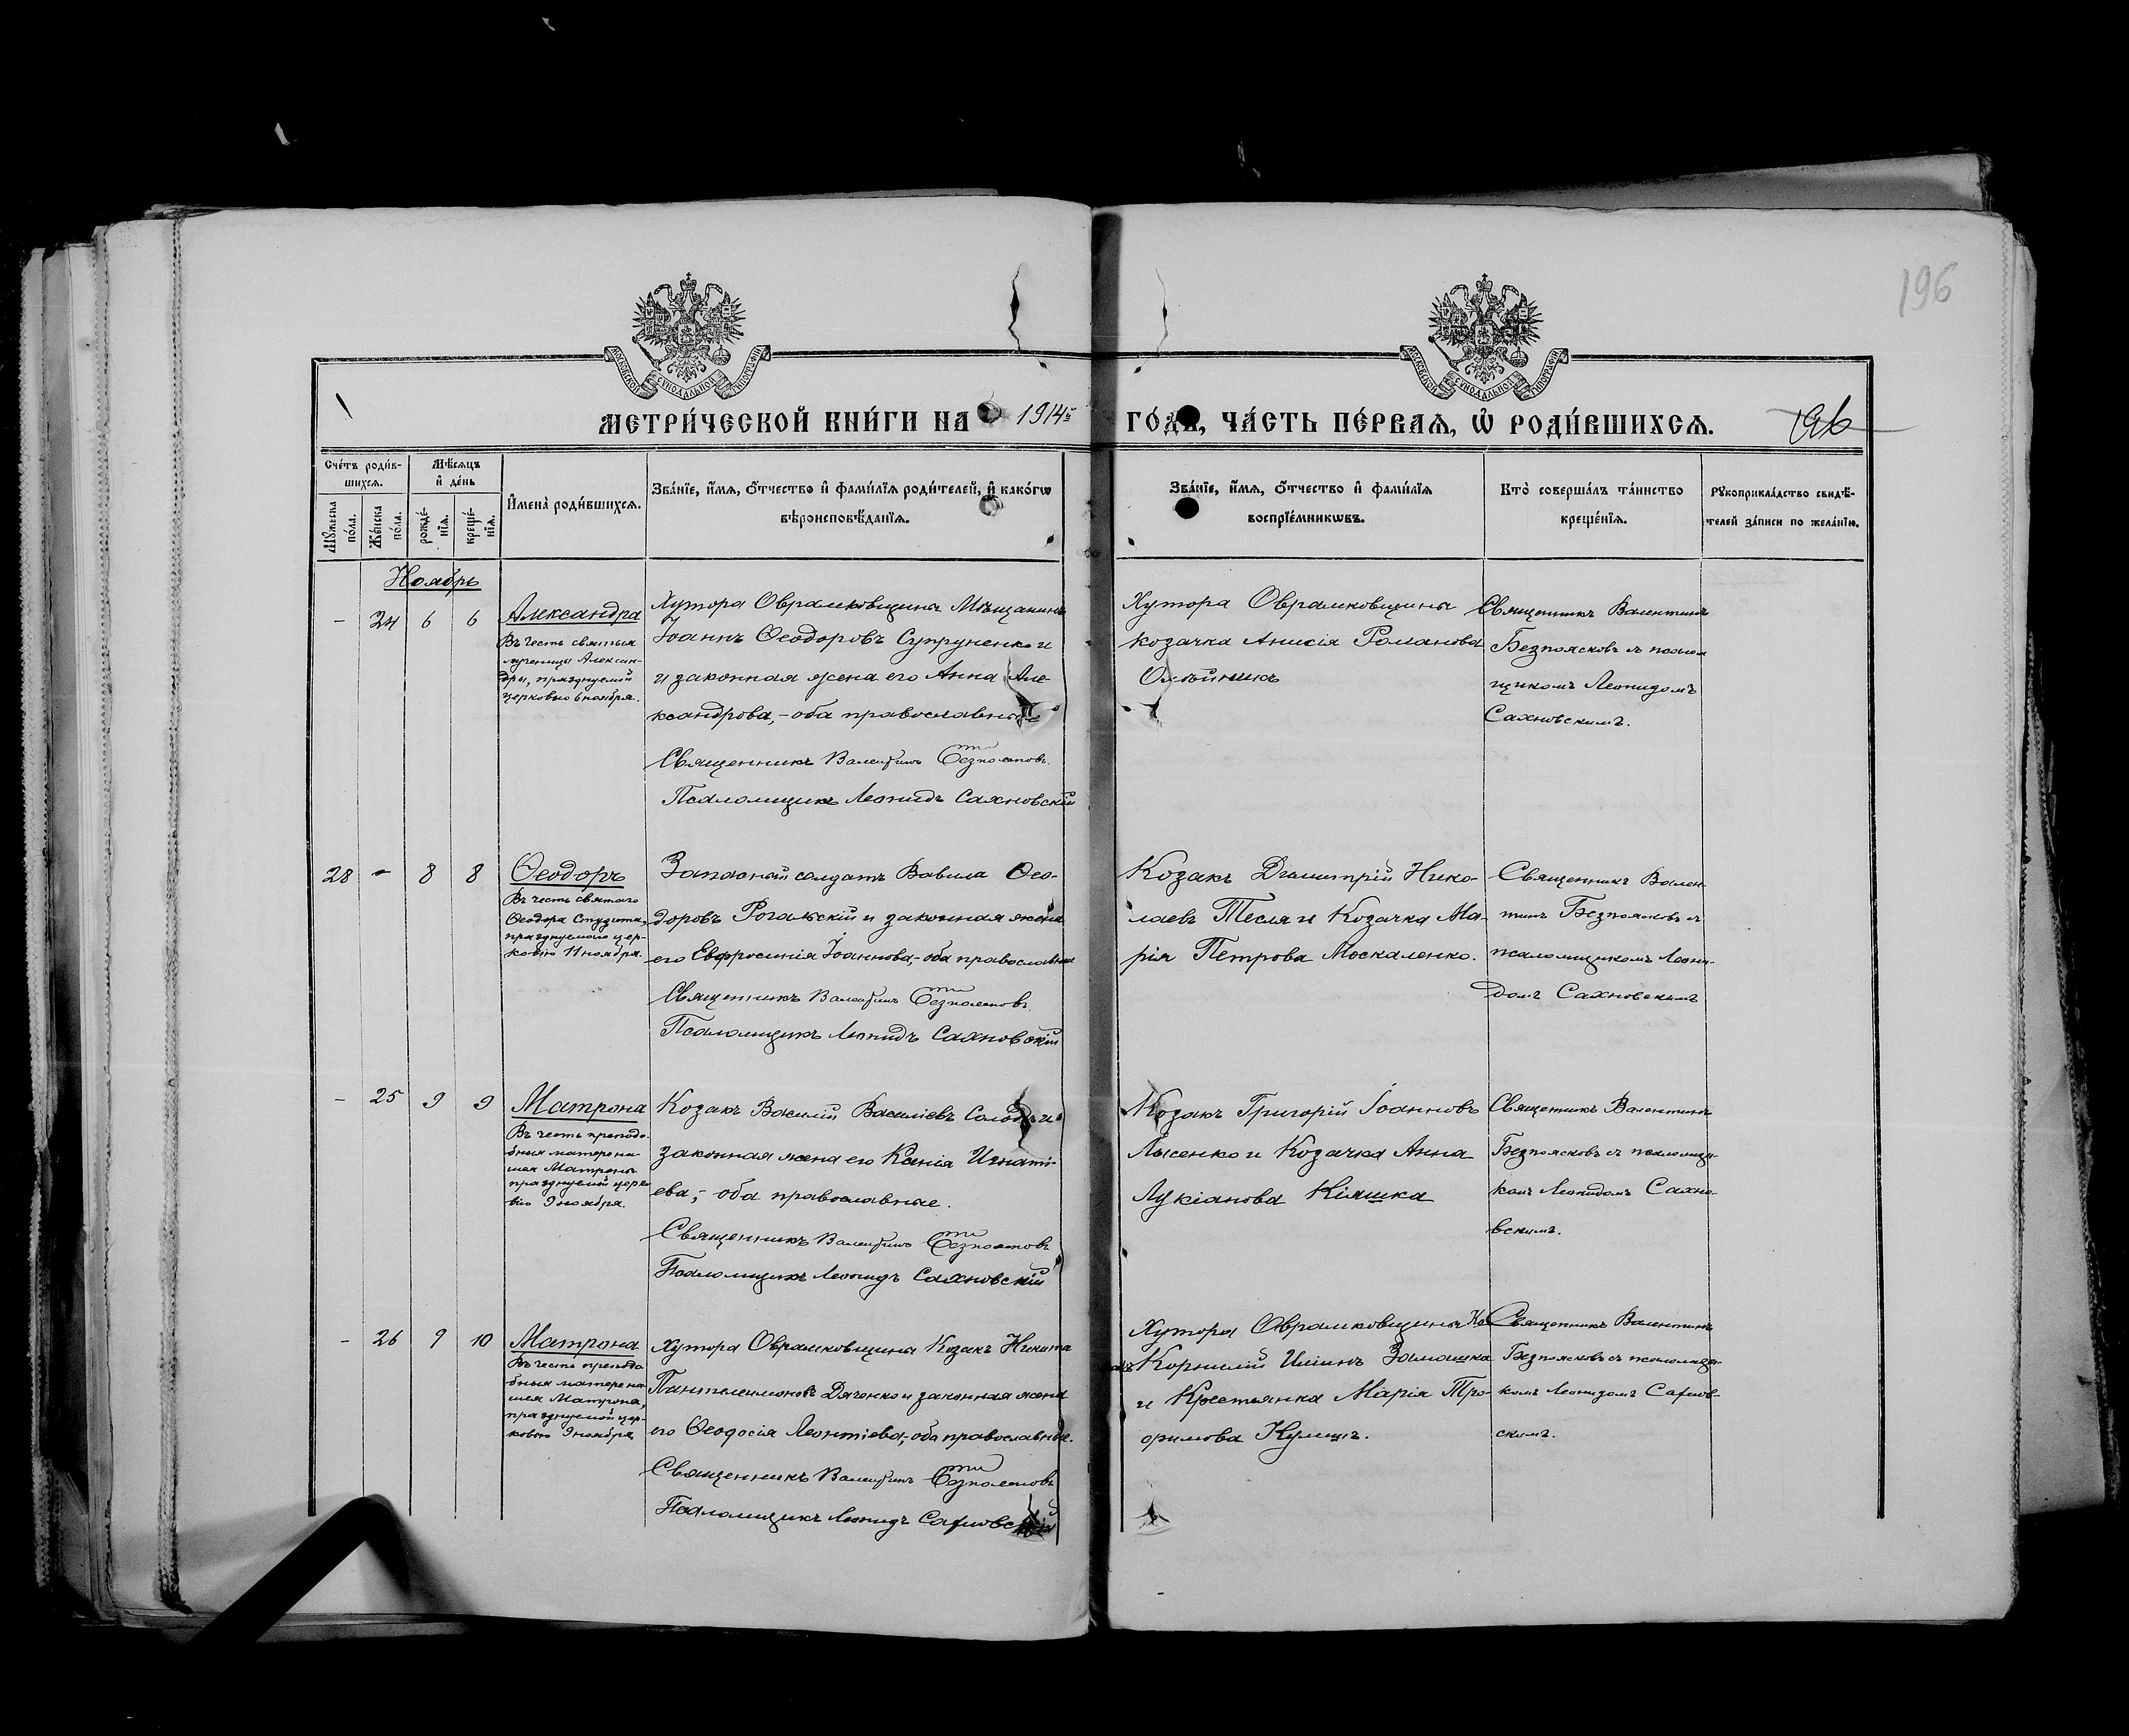 196
МОСКОВСКОЙ СѴНОДАЛЬНОЙ ТИПОГРАФІИ
МОСКОВСКОЙ СѴНОДАЛЬНОЙ ТИПОГРАФІИ
МЕТРИ́ЧЕСКОЙ КНИ́ГИ НА 1914й ГО́ДА, ЧА́СТЬ ПЕ́РВАЯ, Ѡ РОДИ́ВШИХСЯ.
196
Сче́тъ роди́в-
шихся.
Му́жеска по́ла.
Же́нска по́ла.
Мѣ́сяцъ
и́ де́нь
рожде́-
нія.
креще́-
нія.
Имена̀ роди́вшихся.
Зва́ніе, и́мя, ѻ́тчество и́ фами́лія роди́телей, и́ како́гѡ
вѣроисповѣ́данія.
Зва́ніе, и́мя, ѻ́тчество и́ фами́лія
воспріе́мникѡвъ.
Кто̀ соверша́лъ та́инство
креще́нія.
Рꙋкоприкла́дство свидѣ́-
телей за́писи по жела́нію.
Ноябрь
- 24 6 6
Александра
Въ честь святыя
мученицы Алексан-
дры, празднуемой
церковью 6 ноября.
Хутора Оврамковщина Мѣщанинъ
Іоаннъ Ѳеодоровъ Супруненко и
и законная жена его Анна Але-
ксандрова,-оба православные
Священникъ Валентинъ Безпоясковъ.
Псаломщикъ Леонидъ Сахновскій
Хутора Оврамковщины
козачка Анисія Романова
Олейникъ
Священникъ Валентинъ
Безпоясковъ съ псалом
щикомъ Леонидомъ
Сахновскимъ.
28 - 8 8
Ѳеодоръ
Въ честь святаго
Ѳеодора Студита,
празднуемого цер-
ковію 11 ноября.
Запасный солдатъ Вавила Ѳео-
доровъ Рогальскій и законная жена
его Евфросинія Іоаннова,-оба православные
Священникъ Валентинъ Безпоясковъ.
Псаломщикъ Леонидъ Сахновскій
Козакъ Димитрій Нико-
лаевъ Тесля и Козачка Ма-
рія Петрова Москаленко.
Священникъ Вален-
тинъ Безпоясковъ съ
псаломщикомъ Леони-
домъ Сахновскимъ
- 25 9 9
Матрона
Въ честь преподо-
бныя матере на-
шея Матроны
празднуемой церко-
вію 9 ноября.
Козакъ Василій Василіевъ Солодъ и
законная жена его Ксенія Игнаті-
ева,- оба православные.
Священникъ Валентинъ Безпоясковъ
Псаломщикъ Леонидъ Сахновскій
Козакъ Григорій Іоанновъ
Лысенко и Козачка Анна
Лукіанова Кіяшка
Священникъ Валентинъ
Безпоясковъ съ псаломщи-
комъ Леонидомъ Сахно-
вскимъ.
- 26 9 10
Матрона
Въ честь преподо
бныя матере на
шея Матроны,
празднуемой цер-
ковію 9 ноября
Хутора Оврамковщина Козакъ Никита
Пантелеимоновъ Дяченко и законная жена
его Ѳеодосія Леонтіева,-оба православные.
Священникъ Валентинъ Безпоясковъ
Псаломщикъ Леонидъ Сахновскій
Хутора Оврамковщины Ко
закъ Корнилій Иліинъ Замошка
и Крестьянка Марія Тро-
фимова Кулишъ.
Священникъ Валентинъ
Безпоясковъ съ псаломщи-
комъ Леонидомъ Сахнов-
скимъ.